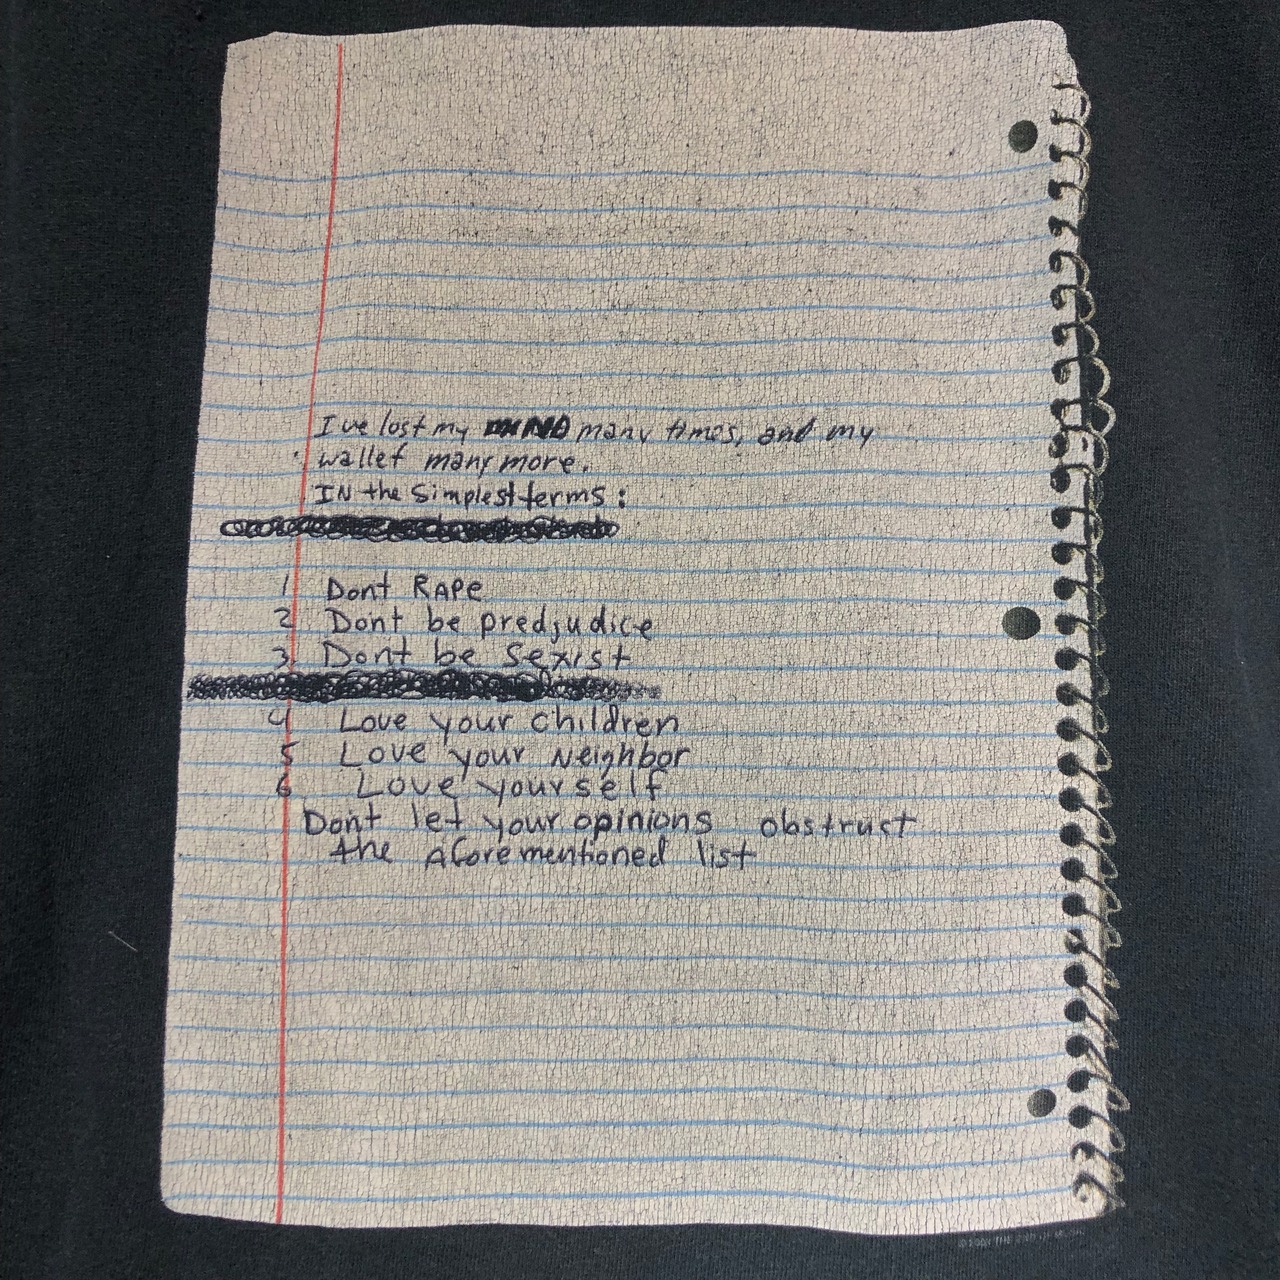 I've lost my MIND many times, and my
wallet many more.
IN the simplest terms:
1 Dont RAPE
2 Dont be predjudice
3 Dont be Sexist
4 Love your children
5 Love your Neighbor
6 Love yourself
Dont let your opinions obstruct
the aforementioned list